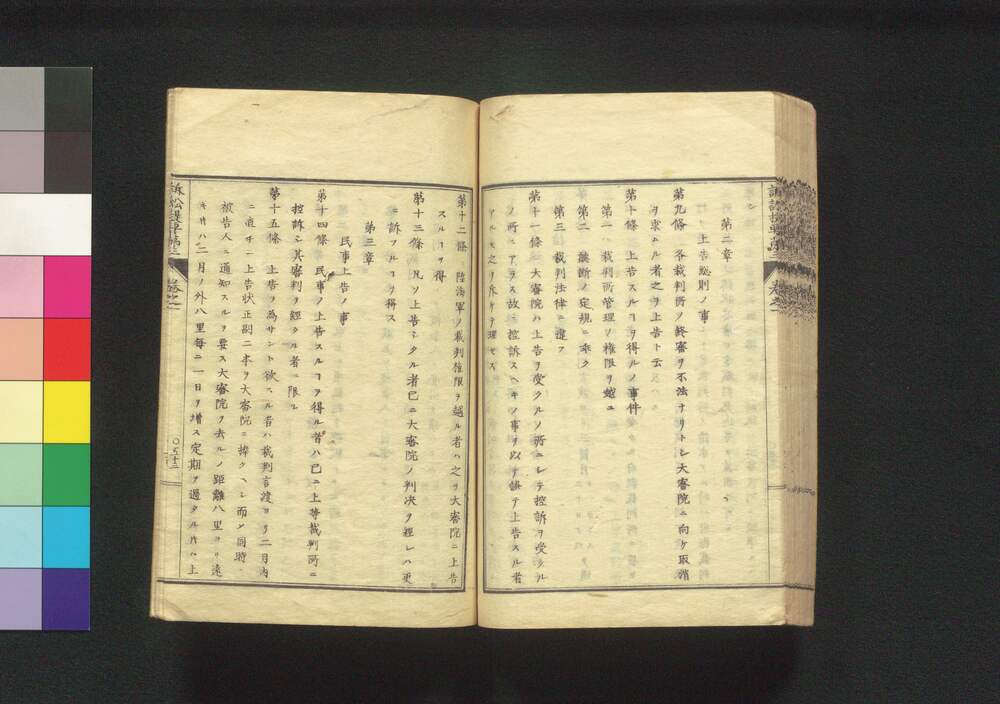 第二章
上告総則ノ事
第九條 各裁判所ノ終審ヲ不法ナリトシ大審院ニ向ケ取消
ヲ求ムル者之ヲ上告ト云
第十條 上告スルヿヲ得ルノ事件
第一 裁判所管理ノ権限ヲ越ユ
第二 聽断ノ定規ニ乖ク
第三 裁判法律ニ違フ
第十一條 大審院ハ上告ヲ受クルノ所ニシテ控訴ヲ受クル
ノ所ニアラス故ニ控訴スヘキノ事ヲ以テ誤テ上告スル者
アルモ之ヲ斥ケテ理セス
第十二條 陸海軍ノ裁判権限ヲ越ル者ハ之ヲ大審院ニ上告
スルヿヲ得
第十三條 凡ソ上告シタル者已ニ大審院ノ判決ヲ経レハ更
ニ訴フルヿヲ得ス
第三章
民事上告ノ事
第十四條 民事ノ上告スルヿヲ得ル者ハ已ニ上等裁判所ニ
控訴シ其審判ヲ経タル者ニ限ル
第十五條 上告ヲ為サント欲スル者ハ裁判言渡ヨリ二月内
ニ直チニ上告状正副二本ヲ大審院ニ捧クヘシ而シテ同時ニ
被告人ニ通知スルヲ要ス大審院ヲ去ルノ距離八里ヨリ遠
キ片ハ二月ノ外八里毎ニ一日ヲ増ス定期ヲ過タル片ハ上
巻之一